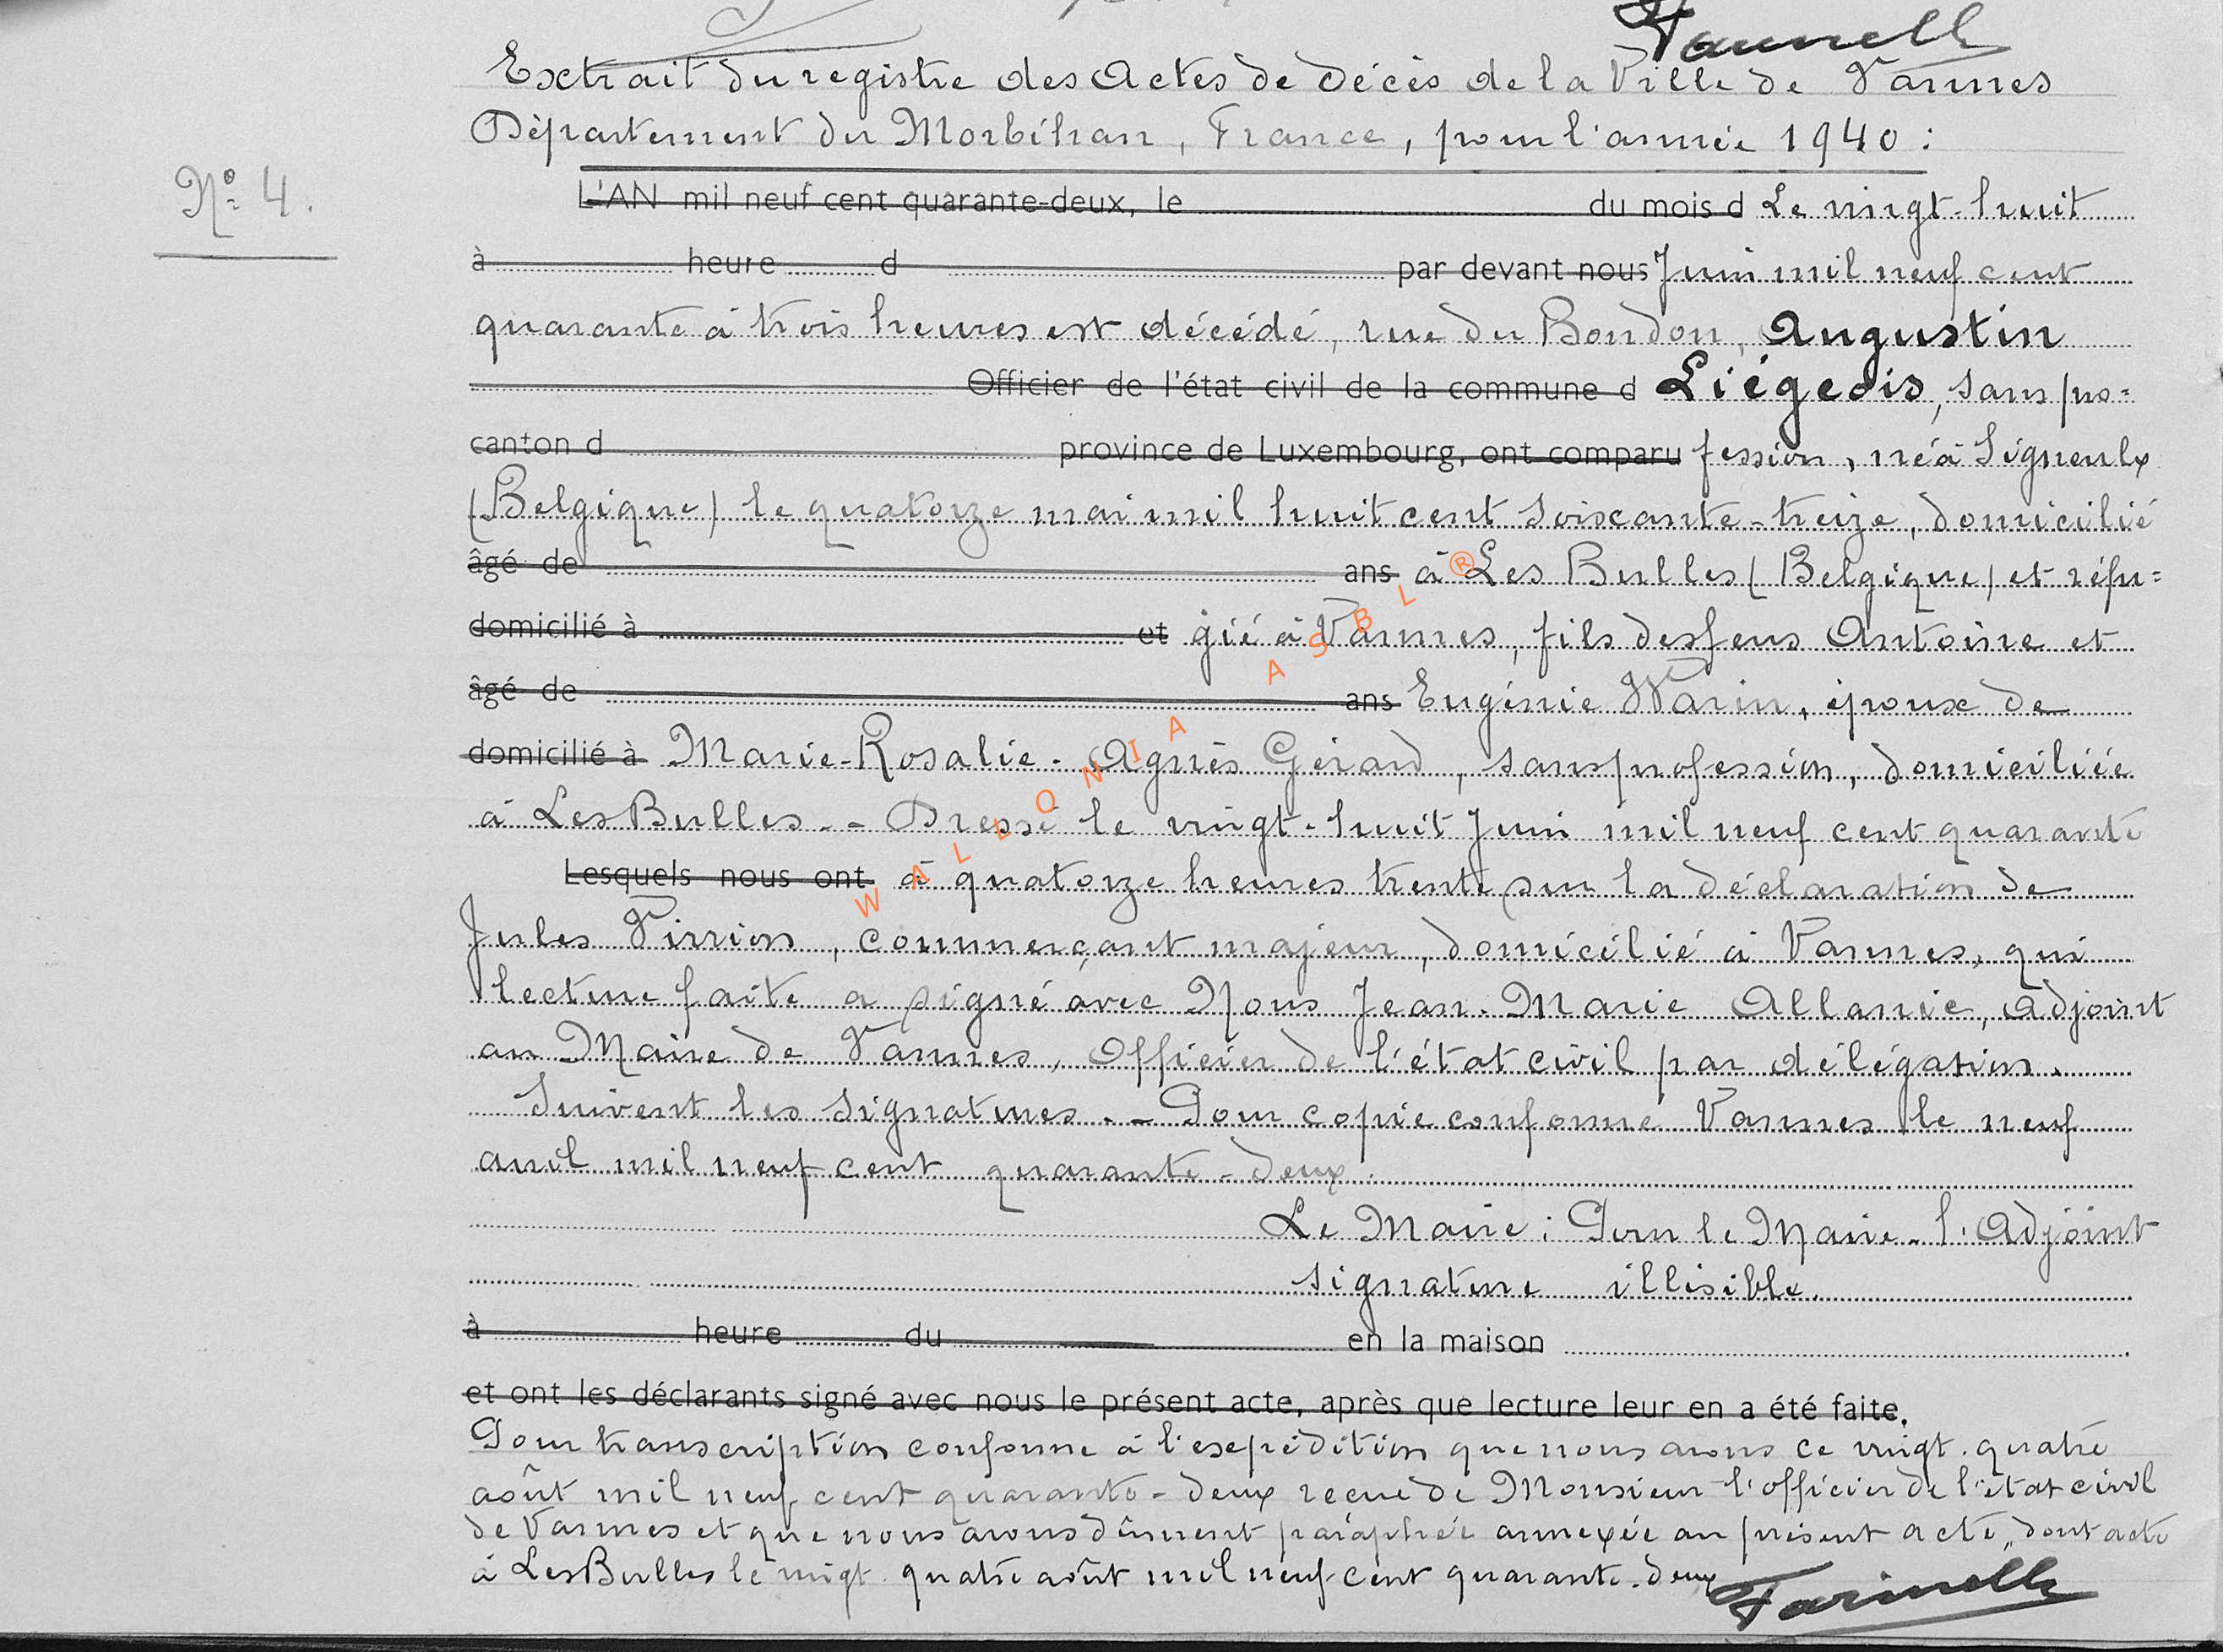 Farinelle
Extrait du registre des Actes de Décès de la Ville de Vannes
Département du Morbihan, France, pour l'année 1940 :
N° 4.
L'AN mil neuf cent quarante-deux, le du mois d Le vingt-huit
à heure d par devant nous Juin mil neuf cent
quarante à trois heures est décédé, rue du Bondon, Augustin
Officier de l'état civil de la commune d Liégeois, sans pro=
canton d province de Luxembourg, ont comparu fession, né à Signeulx
(Belgique) le quatorze mai mil huit cent soixante-treize, domicilié
âgé de ans à Les Bulles (Belgique) et réfu=
domicilié à et gié à Vannes, fils des feus Antoine et
âgé de ans Eugénie Warin, époux de
domicilié à Marie-Rosalie-Agnès Gérard, sans profession, domiciliée
à Les Bulles.- Dressé le vingt-huit Juin mil neuf cent quarante
Lesquels nous ont à quatorze heures trente sur la déclaration de
Jules Virrion, commerçant majeur, domicilié à Vannes, qui
lecture faite a signé avec Nous Jean-Marie Allanic, Adjoint
au Maire de Vannes, Officier de l'état civil par délégation.
Suivent les signatures.- Pour copie conforme Vannes le neuf
avril mil neuf cent quarante-deux.
Le Maire : Pour le Maire - l'Adjoint
signature illisible.
à heure du en la maison
et ont les déclarants signé avec nous le présent acte, après que lecture leur en a été faite.
Pour transcription conforme à l'expédition que nous avons ce vingt-quatre
août mil neuf cent quarante-deux reçue de Monsieur l'officier de l'état civil
de Vannes et que nous avons dûment paraphée annexée au présent acte, dont acte
à Les Bulles le vingt-quatre août mil neuf cent quarante-deux
Farinelle
WALLONIA ASBL ®